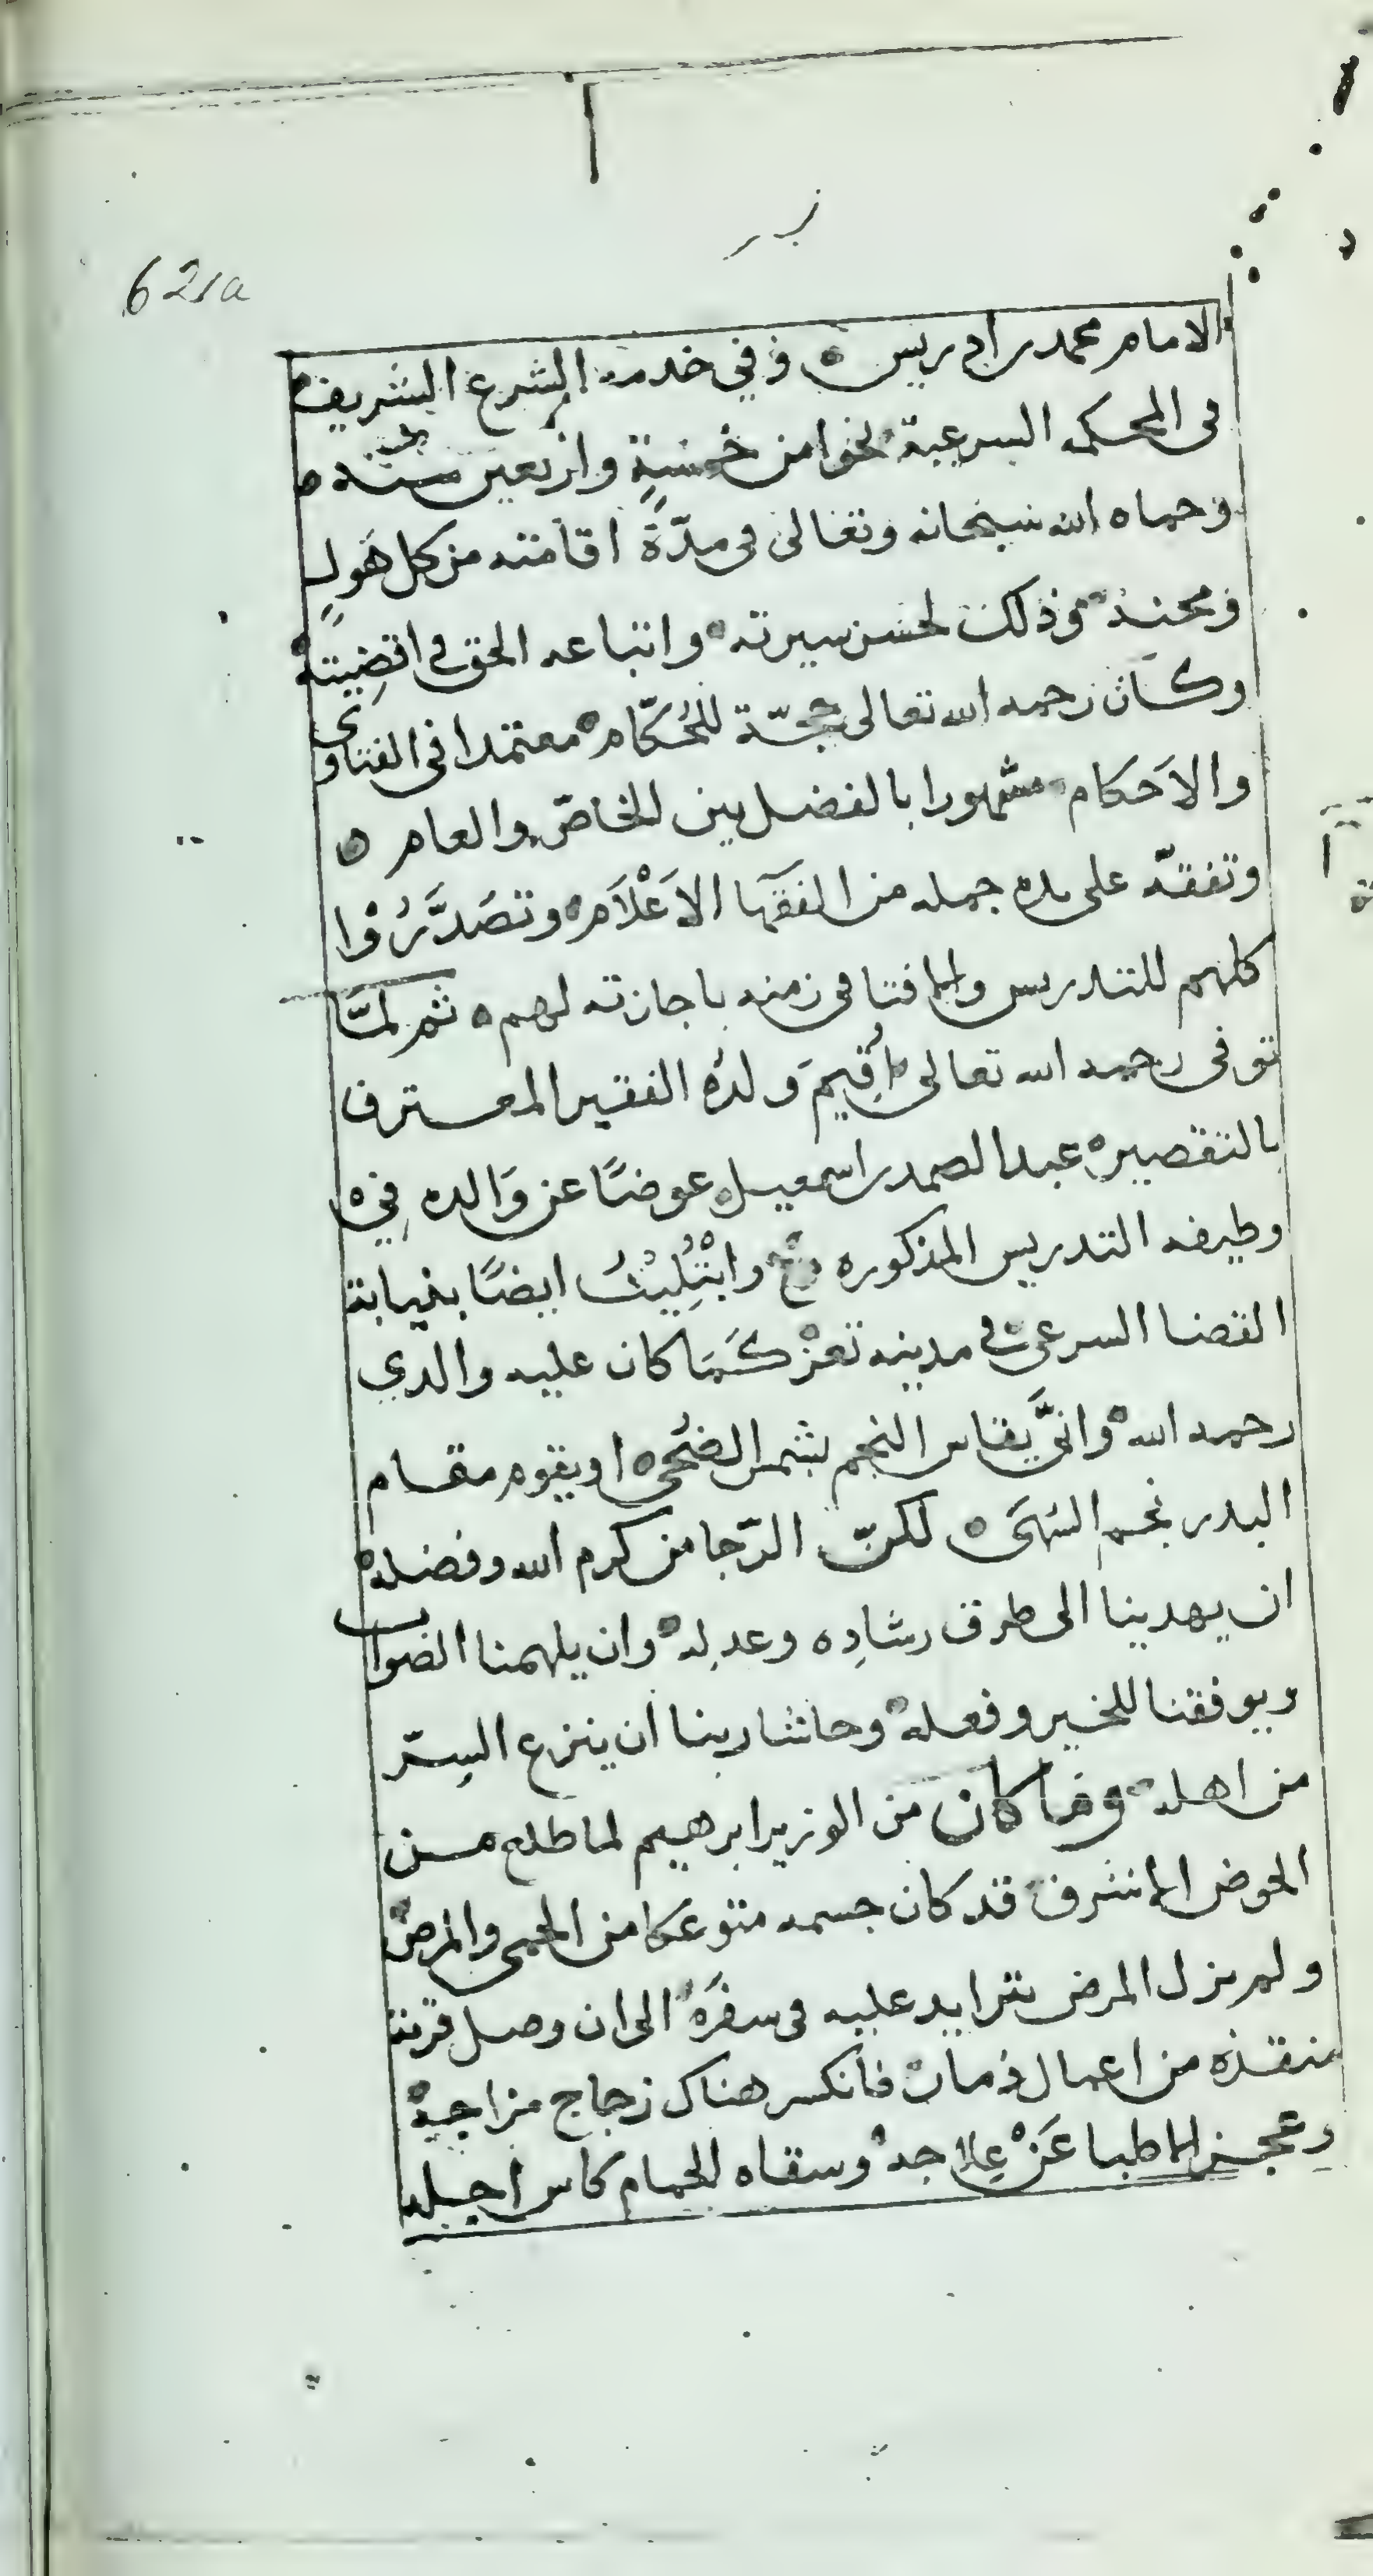 621a
الامام محمد بن ادريس ه وفي خدمة الشرع الشريف
فى المحكمه السرعية نحوا من خمسةٍ واربعين سنه ه
وحماه الله سبحانه وتعالى فى مدّة اقامته من كل هَولٍ
ومحنه وذلك لحسن سيرته واتباعه الحق في اقضِيَته
وكان رحمه الله تعالى حجّة للحُكّام معتمدا فى الفتاوى
والاحكام مشهورا بالفضل بين الخاصّ والعام ه
وتفقّه على يده جمله من الفقَها الاَعْلاَم وتصَدَّرُوْا
كلهم للتدريس والافتا فى زمنه باجازته لهم ه ثم لمّا
توفى رحمه الله تعالى اُقِيمَ ولدُه الفقير المعترف
بالتقصير عبد الصمد بن اسمعيل عوضًا عن وَالده فِي
وظيفه التدريس المذكوره وابْتُلِيْتُ ايضًا بنيابة
القضا السرعى في مدينه تعزْ كَمَا كان عليه والدي
رحمه الله وانَّي يقاس النجم بشمس الضُحى ه او يقوم مقام
البدر نجم السُهَى ه لكنّ الرّجا من كرم الله وفضله
ان يهدينا الى طرق رشادِه وعدلِه وان يلهمنا الصواب
ويوفقنا للخير وفعله وحاشا ربنا ان ينزع السِرّ
من اهله وما كان من الوزير ابرهيم لما طلع من
الحوض الاشرف قد كان جسمه متوعكا من الحمى والمرض
ولم يزل المرض يتزايد عليه فى سفرَه الى ان وصل قرية
منقذه من اعمال ذمار فانكسر هناك زجاج مزاجه
وعجز الاطبا عَنْ عِلاجه وسقاه الحمام كاس اجله